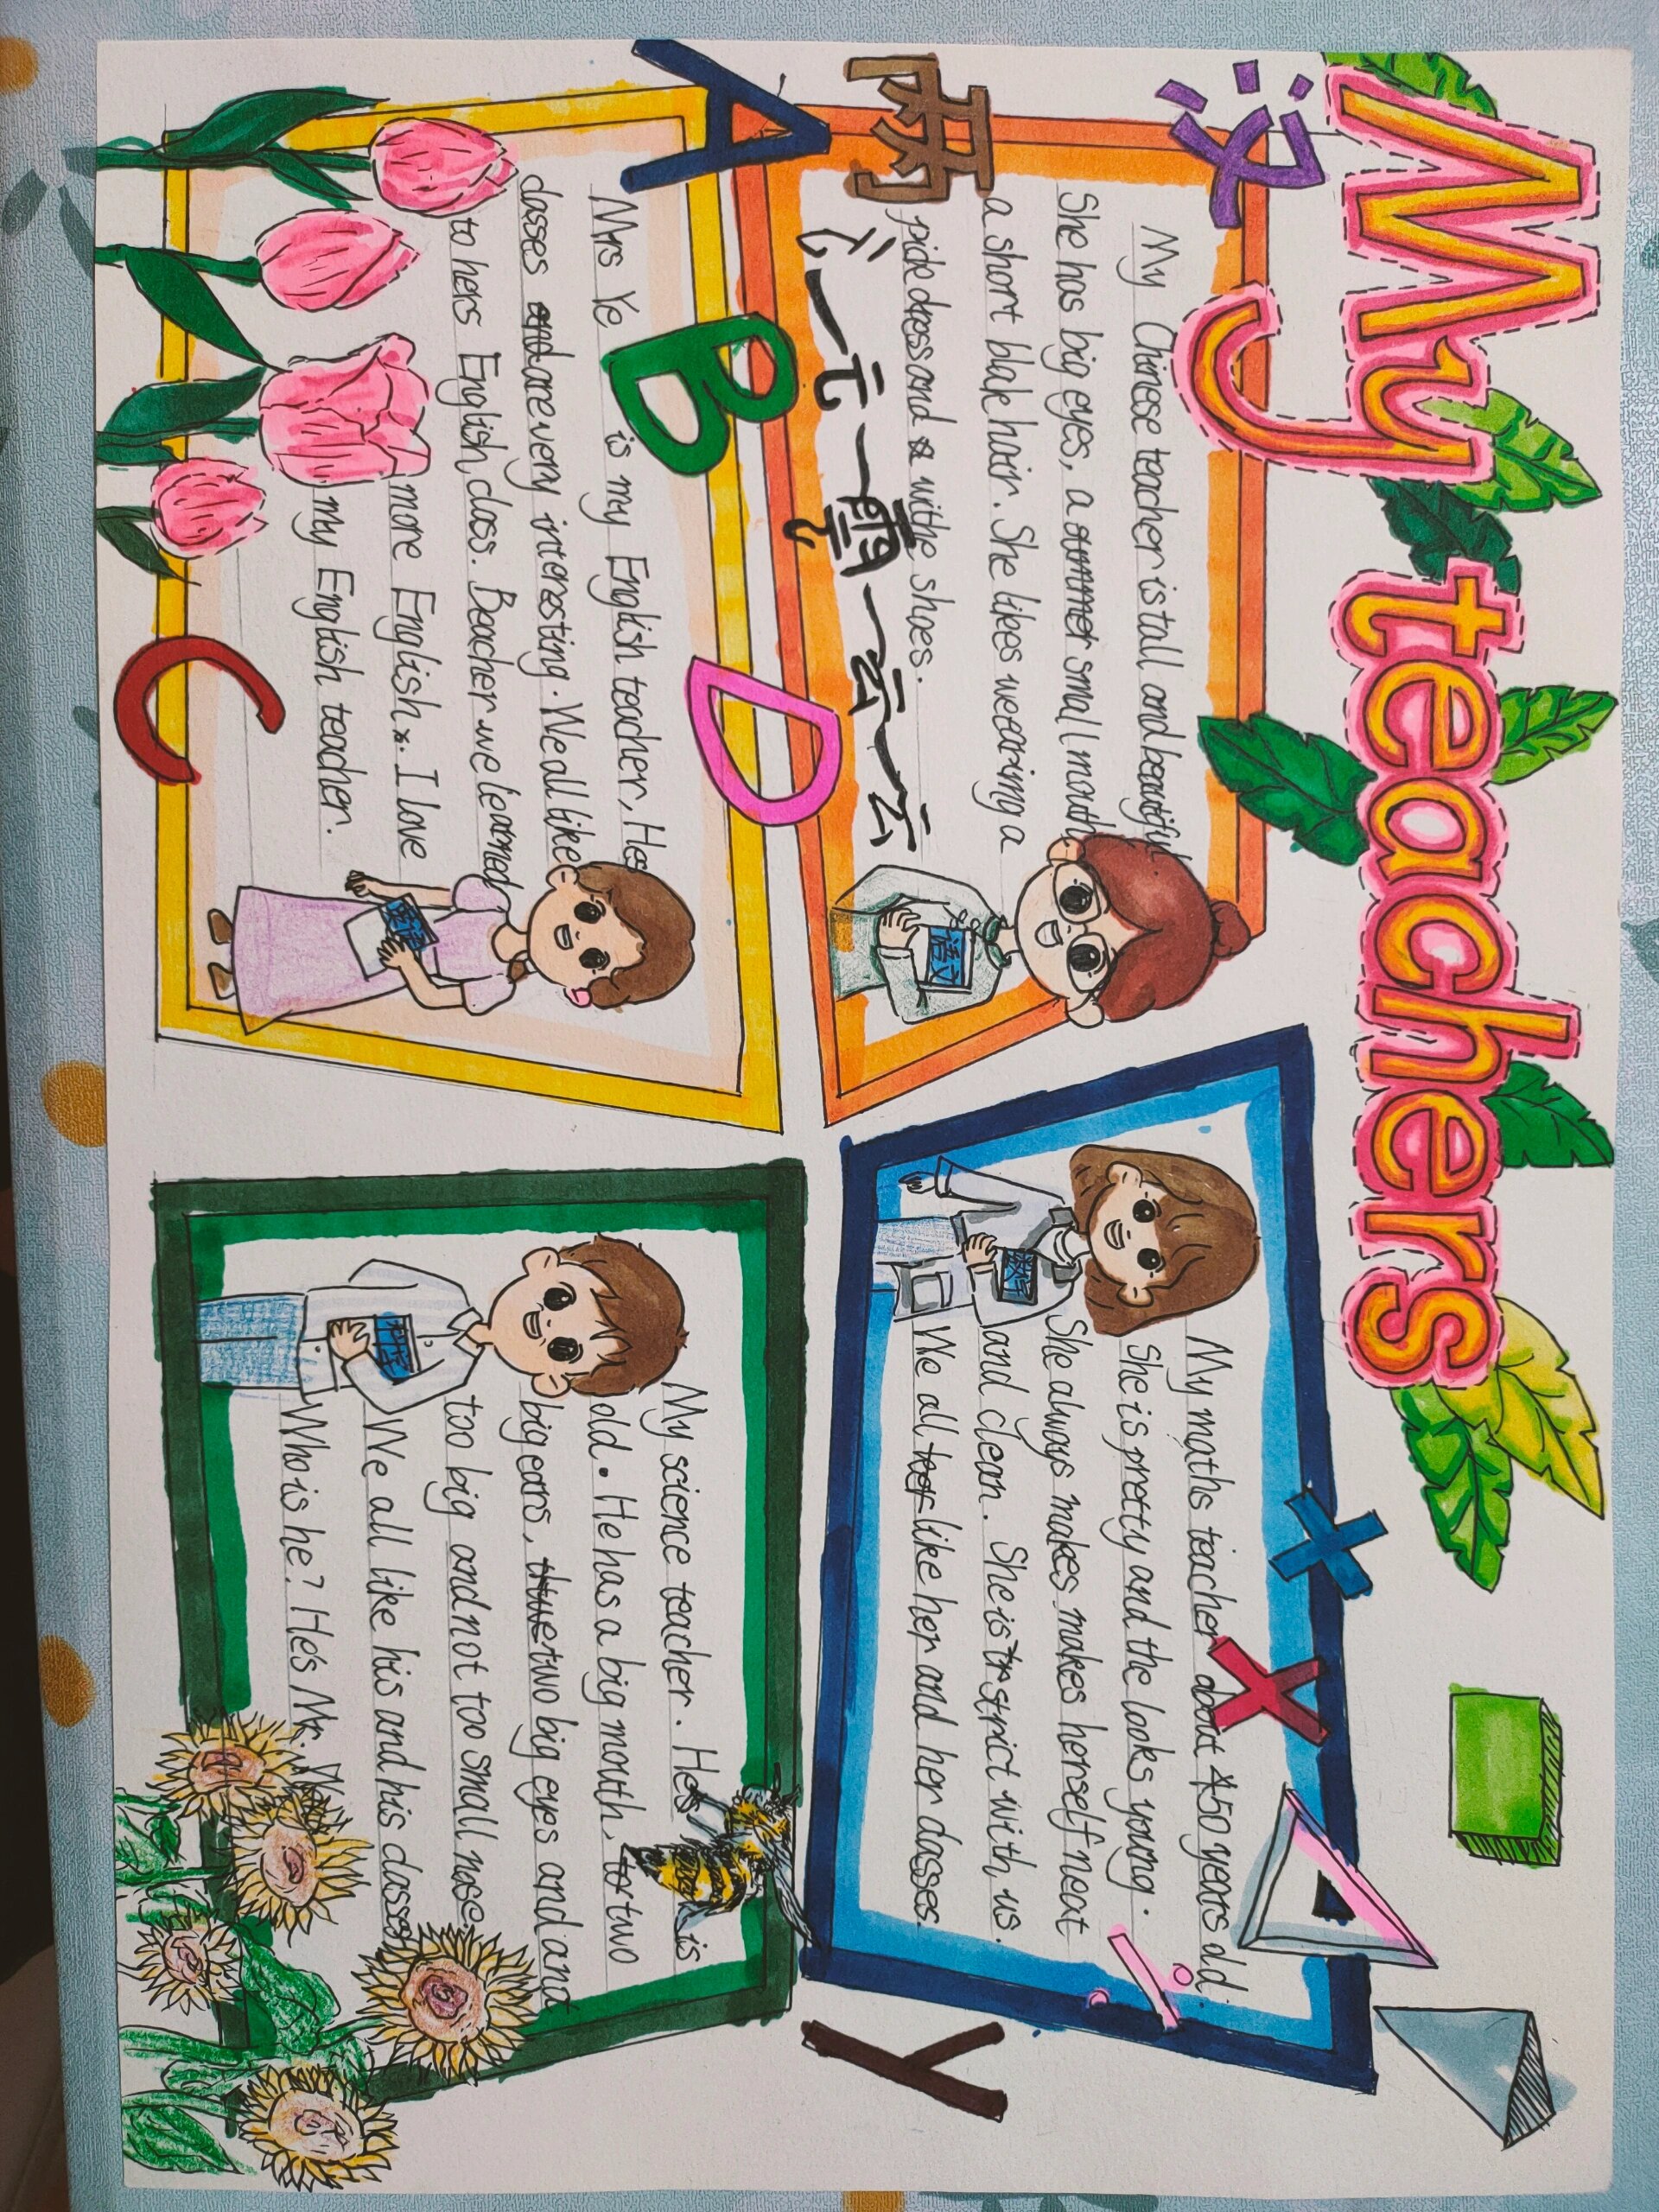 My teachers
汉
My Chinese teacher is tall and beautiful
She has big eyes, a small mouth
a short blak hair. She likes wearing a
pick dress and withe shoes.
语文
My maths teacher about 50 years old.
She is pretty and the looks young.
She always makes makes herself neat
and clean. She is strict with us.
We all like her and her classes.
数学
A
B
C
D
Mrs Ye is my English teacher, Her
classes are very interesting. We all like
to hers English class. Beacher we learned
more English. I love
my English teacher.
英语
My science teacher. He's is
old. He has a big mouth, two
big ears, two big eyes and and
too big and not too small nose.
We all like his and his classes
Who is he? He's Mr.
科学
X
Y